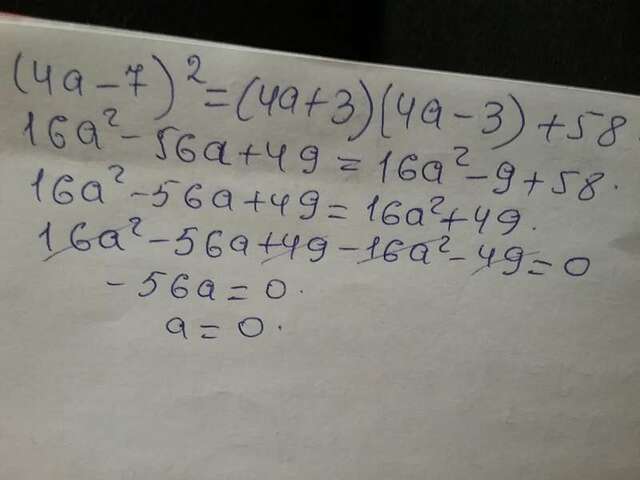 (4a-7)²=(4a+3)(4a-3)+58
16a²-56a+49=16a²-9+58.
16a²-56a+49=16a²+49.
16a²-56a+49-16a²-49=0
-56a=0.
a=0.